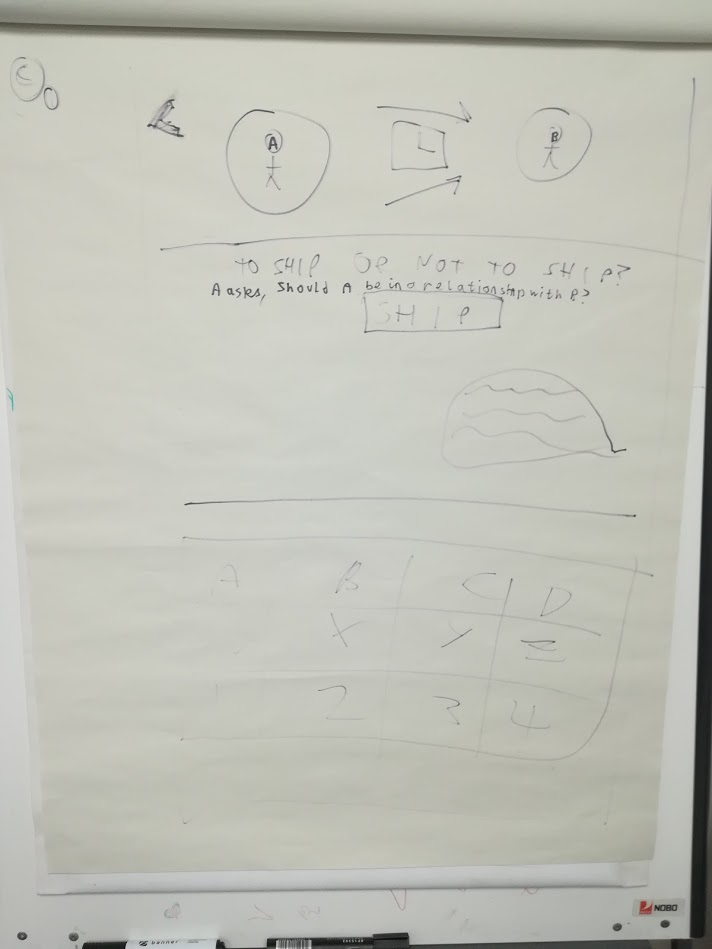 C
A L B
TO SHIP OR NOT TO SHIP?
A asks, Should A be in a relationship with B?
SHIP
A B C D
X Y Z
2 3 4
NOBO